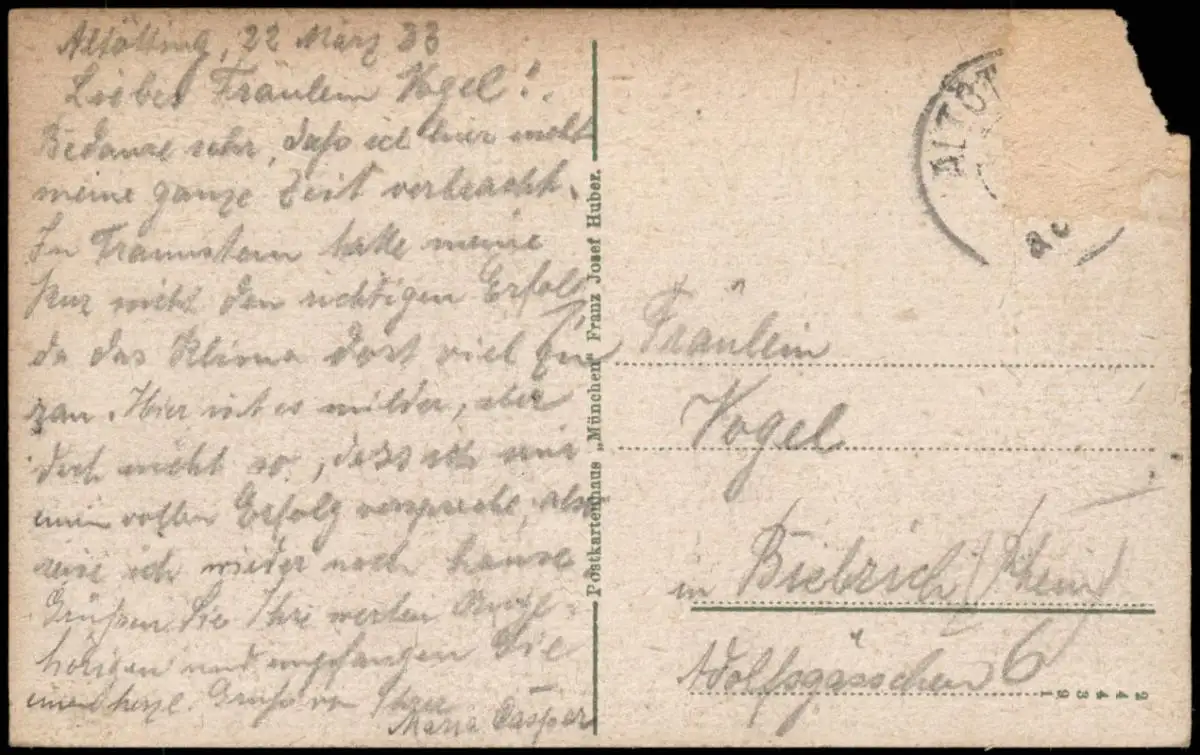 Altötting, 22 März 33
Liebes Fräulein Vogel!
Bedaure sehr, daß ich hier nicht
meine ganze Zeit verbracht.
In Traunstein hatte meine
Kur nicht den richtigen Erfolg
da das Klima dort viel zu
rau. Hier ist es milder, aber
doch nicht so, dass ich mir
einen vollen Erfolg verspreche, also
reise ich wieder nach hause
Grüßen Sie Ihre werten Ange-
hörigen und empfangen Sie
einen herzl. Gruß von Ihrer
Maria Casper
Postkartenhaus „München“ Franz Josef Huber.
ALTÖT
Fräulein
Vogel
in Biebrich (Rhein)
Adolfsgässchen 6